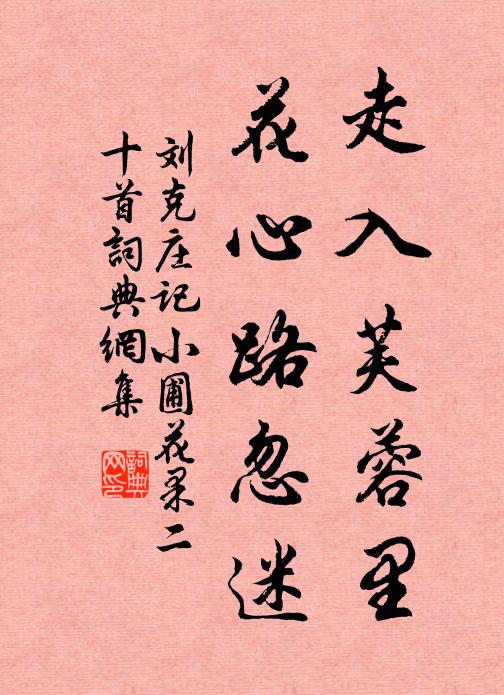 走入芙蓉里
花心路忽迷
刘克庄记小圃花果二
十首詞典網集
詞典
网印